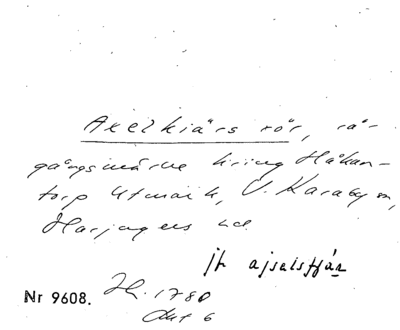 Axelkiärs rör, rå-
gångsmärke kring Håkan-
torp Utmark, V. Karaby sn,
Harjagers hd.
jfr ajselstjär
Nr 9608. Jh. 1780
Akt 6